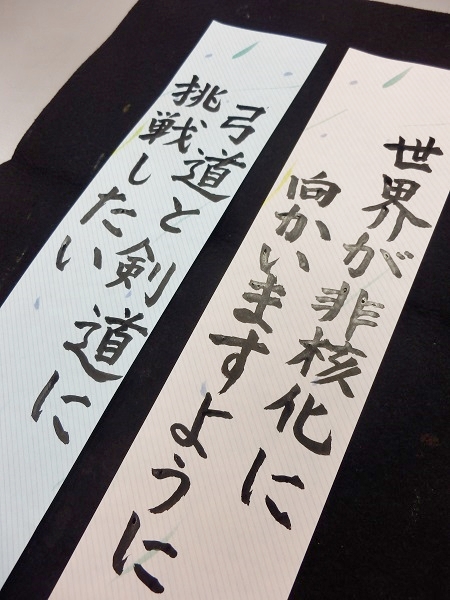 世界が非核化に
向かいますように
弓道と剣道に
挑戦したい